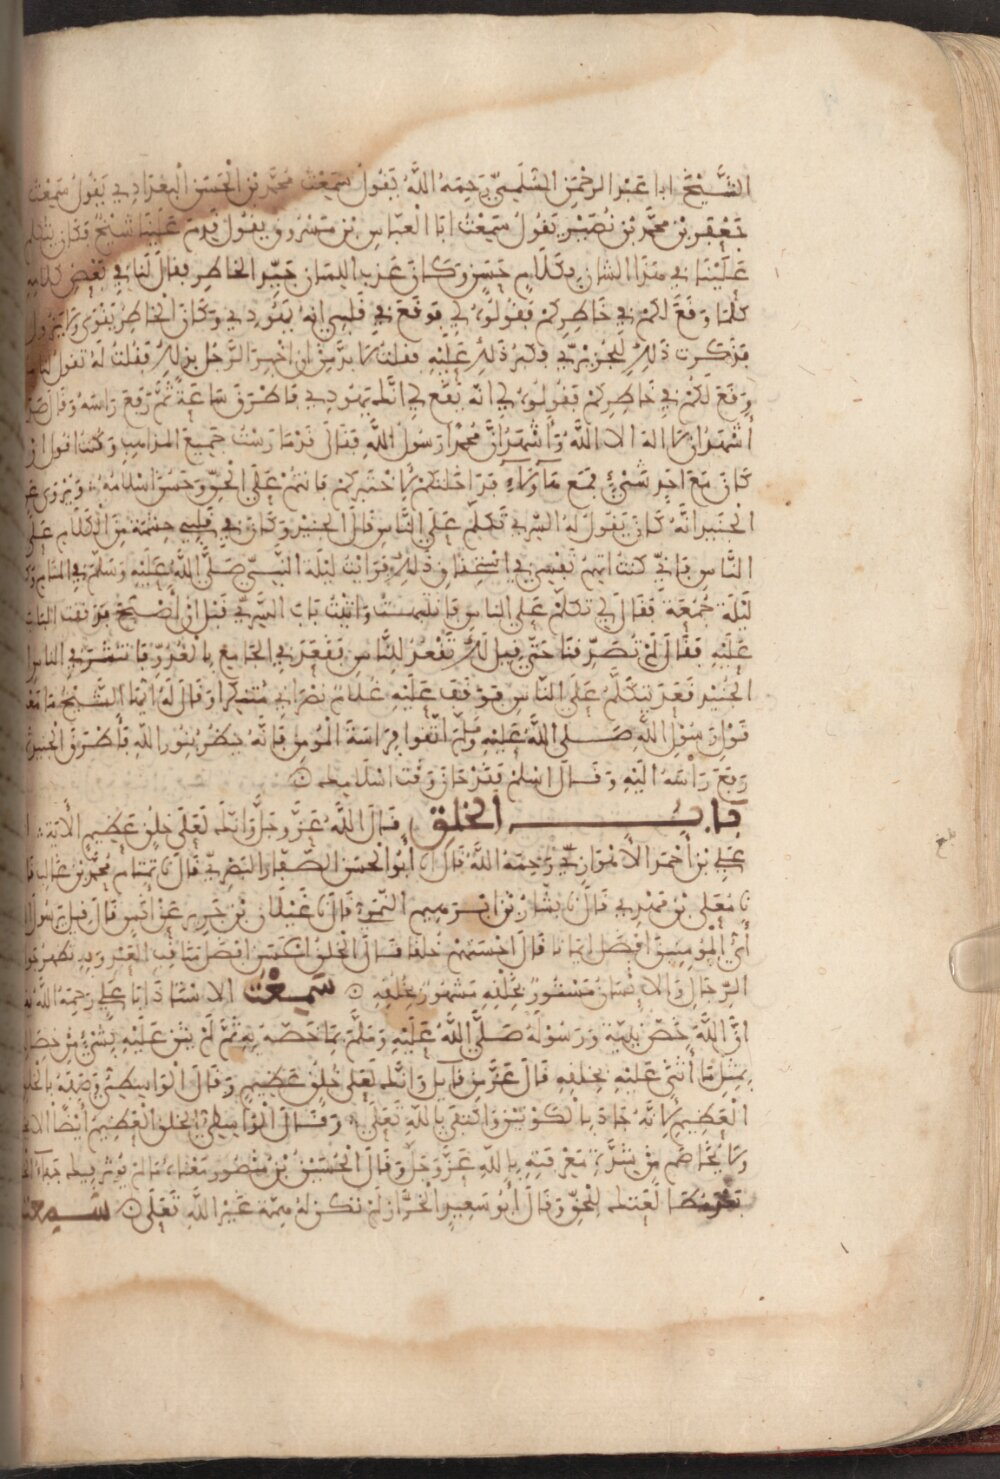 الشَّيْخَ ابا عبد الرحمن السُّلَمِيَّ رَحِمَهُ اللَّهُ يَقُولُ سَمِعْتُ محمد بن الْحَسَن الْبَغْدَادِي يَقُولُ سَمِعْتُ
جَعْفَر بن محمَّد بْن نُصَيْر يَقُولُ سَمِعْتُ ابَا الْعَبَّاسِ بْن مَسْرُوق يَقُول قَدِمَ عَلَيْنَا شَيْخٌ فَكَانَ يتكلم
عَلَيْنَا في هَذَا الشان بِكَلَامٍ حَسَنٍ وَكَانَ عَذب اللسان جَيِّد الخاطِر فقال لَنا في بَعْضِ كلامه
كُلّمَا وَقَعَ لكُمْ في خَاطِرِكُمْ فقُولُوه لي فوَقَعَ في قَلْبِي انهُ يَهُودِي وَكَانَ الْخَاطِرُ يَقْوَى وَلا يزول
فَذكرت ذَلِكَ لِلْجُرَيْرِي فكبُرَ ذَلِكَ عَلَيْهِ فقلت لا بدَّ من ان اخبر الرَّجُلَ بذلك فَقُلتُ لَهُ تقول لنا ما
وقَعَ لَكُمْ في خَاطِرِكُمْ فَقُولُوه لي انه يَقَع لي انَّك يَهُودِي فَاطْرَقَ سَاعَةً ثُمَّ رَفَعَ رَاسَهُ وَقَالَ صَدَقت
أَشْهَدُ ان لا اله الا اللَّهُ وَأَشْهَدُ أَنَّ مُحمَّدا رَسُولُ اللَّهِ فَقَالَ قَدْ مَارَسْتُ جَمِيعَ المذاهب وَكُنتُ اقول ان
كَانَ مَعَ احَدٍ شَيْءٌ فمَعَ هَاؤُلَاءِ فدَاخَلْتُكُمْ لأَخْتَبِرَكُمْ فانتُمْ عَلَى الْحَقِّ وَحَسُنَ اسْلَامُهُ وَيُرْوَى عن
الْجُنَيد انَّهُ كَانَ يَقُول لَهُ السَّرِيُّ تَكَلَّمْ عَلَى النَّاسِ قَالَ الجنَيْدُ وَكَانَ في قَلْبِي حِشْمَة مِنَ الْكَلَامِ عَلَى
النَّاسِ فَإِنِّي كُنتُ اتَّهِمُ نَفْسِي في اسْتِحْقَاقِ ذَلِكَ فرَأَيْتُ لَيْلَةً النَّبيَّ صَلَّى اللَّهُ عَلَيْهِ وَسَلَّمَ في المنام وَكانت
لَيْلَةَ جُمُعَةٍ فَقَالَ لي تَكَلَّمْ عَلَى الناس فانتبهتُ وَاتَيْتُ بَابَ السَّرِيِّ قَبْلَ انْ أُصْبِحَ فدققت البَابَ
عَلَيْهِ فَقَالَ لَمْ تُصَدِّقنَا حَتَّى قِيلَ لَكَ فَقَعَدَ لِلنَّاسِ فقعد في الجَامِعِ بِالْغُدُوِّ فَانتشَرَ في الناس ان
الجُنَيْد قَعَدَ يَتَكَلَّمُ عَلَى النَّاسِ فَوَقَفَ عَلَيْهِ غُلَامٌ نَصْرَانِي مُتَنَكِّرًا وَقَالَ لَهُ ايُّهَا الشَّيْخُ مَا مَعْنَى
قَوْل رَسُول اللَّهِ صَلى اللَّهُ عَلَيْهِ وَسَلَّمَ اتَّقُوا فِرَاسَةَ الْمُؤمِنِ فَإِنَّهُ يَنظُرُ بِنُورِ اللَّهِ فَأَطْرَقَ الجُنَيْدُ ثم
رَفَعَ رَأْسَهُ الَيْهِ وَقَالَ اسْلِمْ فَقَدْ حَانَ وَقْت اسْلَامِك
بَاب الخلق قَالَ اللَّهُ عَزَّ وجَلَّ وَإِنَّكَ لَعَلَى خُلُقٍ عَظِيمٍ الْآيَة
عَلِي بْن أحْمَد الْأَهْوَازِيّ رَحِمَهُ اللَّهُ قَالَ أَبُو الْحَسَن الصَّفَّار البَصْرِي قَالَ نا تمتام محَمَّد بْن غَالِب قال
نا مُعَلَّى بْن مَهْدِي قَالَ نا بشَّارُ بْنُ ابْرَهِيم النُّمَيري قَالَ نا غَيْلَانُ بْن جَرِير عَنْ انَسٍ قَالَ قِيلَ يَا رَسُولَ اللَّهِ
أَيُّ الْمُؤْمِنِينَ افْضَلُ ايمَانا قَالَ احْسَنُهُمْ خُلُقًا قَالَ الْخُلُقُ الحَسَنُ افْضَلُ مَنَاقِب العَبْد وَبِهِ تظهَر جَواهر
الرِّجَالِ وَالْانْسَانُ مَسْتُورٌ بِخَلْقِهِ مَشْهُورٌ بِخُلُقِهِ سَمِعْتُ الاسْتَاذ ابَا عَلِي رَحِمَهُ اللَّهُ يقول
انَّ اللَّهَ خَصَّ نَبِيَّهُ وَرَسُولَهُ صَلَّى اللَّهُ عَلَيْهِ وَسَلَّمَ بِمَا خَصَّهُ بِهِ ثُمَّ لَمْ يُثْنِ عَلَيْهِ بِشَيْءٍ مِنْ خِصَالِهِ
بِمِثْلِ مَا أَثْنَى عَلَيْهِ بِخُلُقِهِ قَالَ عَزَّ مِن قايِل وَانَّكَ لَعَلَى خُلُقٍ عَظِيمٍ وَقَالَ الْوَاسِطِيُّ وَصَفَهُ بالخُلُقِ
الْعَظِيمِ لأَنَّهُ جَادَ بِالْكَوْنَيْنِ وَاكْتَفَى بِاللَّهِ تَعَلَى وَقَالَ الوَاسِطِيُّ الخُلُق الْعَظِيمُ أيْضًا الا يخاصم
وَلا يُخَاصَم مِنْ شِدَّة مَعْرِفَتِهِ بِاللَّهِ عَزَّ وَجَلَّ وَقَالَ الْحُسَيْنُ بْنُ مَنْصُور مَعْنَاهُ مَا لَمْ يُؤَثِّر فِيكَ جَفَاءُ الخلق
بَعْدَ مُطالعَتِكَ الْحَقّ وَقَالَ أَبُو سَعِيد الْخَرَّاز لَمْ تكن لَهُ هِمَّة غَيْرُ اللَّهِ تَعَلَى سَمِعت